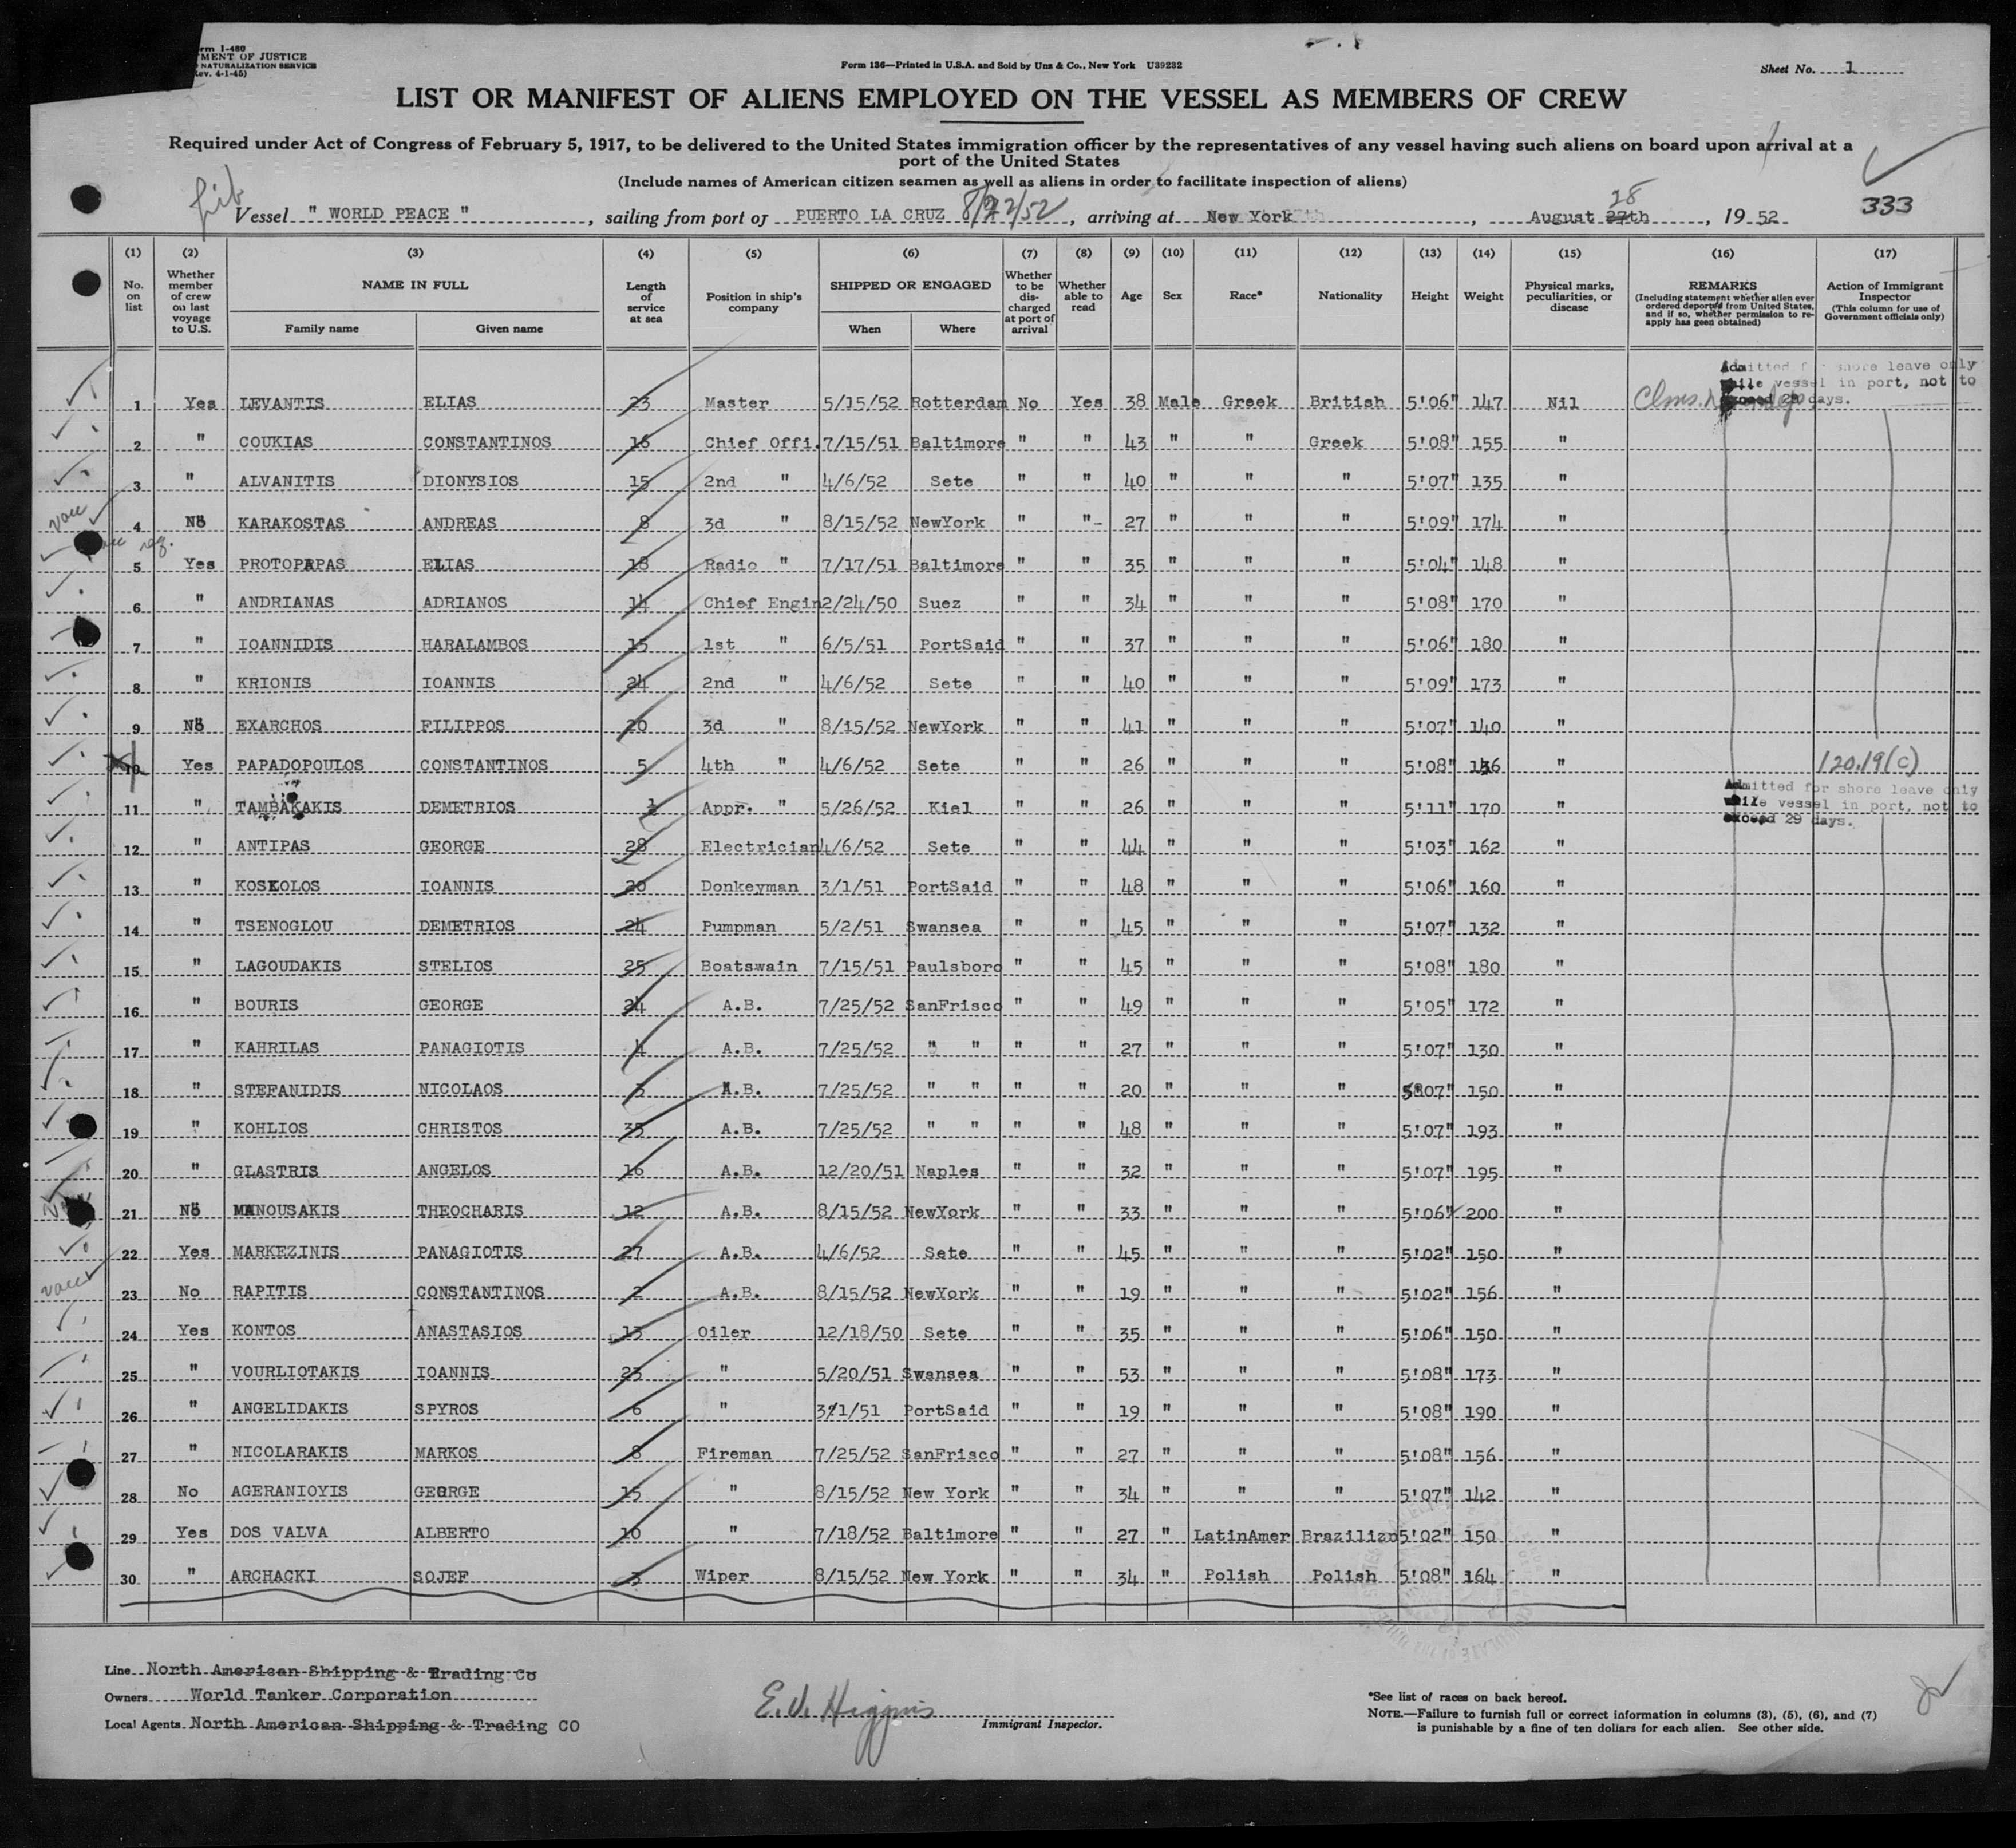 rm I-480
TMENT OF JUSTICE
NATURALIZATION SERVICE
ev. 4-1-45)
Form 136—Printed in U.S.A. and Sold by Unz & Co., New York U39232
Sheet No. 1
LIST OR MANIFEST OF ALIENS EMPLOYED ON THE VESSEL AS MEMBERS OF CREW
Required under Act of Congress of February 5, 1917, to be delivered to the United States immigration officer by the representatives of any vessel having such aliens on board upon arrival at a
port of the United States
(Include names of American citizen seamen as well as aliens in order to facilitate inspection of aliens)
Lib
28
333
Vessel " WORLD PEACE ", sailing from port of PUERTO LA CRUZ 8/22/52, arriving at New York, August 27th, 19 52
(1) (2) (3) (4) (5) (6) (7) (8) (9) (10) (11) (12) (13) (14) (15) (16) (17)
No. on list
Whether member of crew on last voyage to U.S.
NAME IN FULL
Family name
Given name
Length of service at sea
Position in ship's company
SHIPPED OR ENGAGED
When
Where
Whether to be discharged at port of arrival
Whether able to read
Age
Sex
Race*
Nationality
Height
Weight
Physical marks, peculiarities, or disease
REMARKS
(Including statement whether alien ever ordered deported from United States, and if so, whether permission to re-apply has geen obtained)
Action of Immigrant Inspector
(This column for use of Government officials only)
Admitted for shore leave only
while vessel in port, not to
exceed 29 days.
1 Yes LEVANTIS ELIAS 23 Master 5/15/52 Rotterdam No Yes 38 Male Greek British 5'06" 147 Nil
2 " COUKIAS CONSTANTINOS 16 Chief Offi. 7/15/51 Baltimore " " 43 " " Greek 5'08" 155 "
3 " ALVANITIS DIONYSIOS 15 2nd " 4/6/52 Sete " " 40 " " " 5'07" 135 "
vacc
4 No KARAKOSTAS ANDREAS 8 3d " 8/15/52 NewYork " " 27 " " " 5'09" 174 "
reg.
5 Yes PROTOPAPAS ELIAS 18 Radio " 7/17/51 Baltimore " " 35 " " " 5'04" 148 "
6 " ANDRIANAS ADRIANOS 14 Chief Engin 2/24/50 Suez " " 34 " " " 5'08" 170 "
7 " IOANNIDIS HARALAMBOS 15 1st " 6/5/51 PortSaid " " 37 " " " 5'06" 180 "
8 " KRIONIS IOANNIS 24 2nd " 4/6/52 Sete " " 40 " " " 5'09" 173 "
9 No EXARCHOS FILIPPOS 20 3d " 8/15/52 NewYork " " 41 " " " 5'07" 140 "
10 Yes PAPADOPOULOS CONSTANTINOS 5 4th " 4/6/52 Sete " " 26 " " " 5'08" "  120.19(c)
Admitted for shore leave only
while vessel in port, not to
exceed 29 days.
11 " TAMBAKAKIS DEMETRIOS 1 Appr. " 5/26/52 Kiel " " 26 " " " 5'11" 170 "
12 " ANTIPAS GEORGE 28 Electrician 4/6/52 Sete " " 44 " " " 5'03" 162 "
13 " KOSKOLOS IOANNIS 20 Donkeyman 3/1/51 PortSaid " " 48 " " " 5'06" 160 "
14 " TSENOGLOU DEMETRIOS 24 Pumpman 5/2/51 Swansea " " 45 " " " 5'07" 132 "
15 " LAGOUDAKIS STELIOS 25 Boatswain 7/15/51 Paulsboro " " 45 " " " 5'08" 180 "
16 " BOURIS GEORGE 24 A.B. 7/25/52 SanFrisco " " 49 " " " 5'05" 172 "
17 " KAHRILAS PANAGIOTIS 4 A.B. 7/25/52 " " " " 27 " " " 5'07" 130 "
18 " STEFANIDIS NICOLAOS 3 A.B. 7/25/52 " " " " 20 " " " 5'07" 150 "
19 " KOHLIOS CHRISTOS 35 A.B. 7/25/52 " " " " 48 " " " 5'07" 193 "
20 " GLASTRIS ANGELOS 16 A.B. 12/20/51 Naples " " 32 " " " 5'07" 195 "
21 No MANOUSAKIS THEOCHARIS 12 A.B. 8/15/52 NewYork " " 33 " " " 5'06" 200 "
22 Yes MARKEZINIS PANAGIOTIS 27 A.B. 4/6/52 Sete " " 45 " " " 5'02" 150 "
vacc
23 No RAPITIS CONSTANTINOS 2 A.B. 8/15/52 NewYork " " 19 " " " 5'02" 156 "
24 Yes KONTOS ANASTASIOS 13 Oiler 12/18/50 Sete " " 35 " " " 5'06" 150 "
25 " VOURLIOTAKIS IOANNIS 23 " 5/20/51 Swansea " " 53 " " " 5'08" 173 "
26 " ANGELIDAKIS SPYROS 6 " 3/1/51 PortSaid " " 19 " " " 5'08" 190 "
27 " NICOLARAKIS MARKOS 8 Fireman 7/25/52 SanFrisco " " 27 " " " 5'08" 156 "
28 No AGERANIOYIS GEORGE 15 " 8/15/52 New York " " 34 " " " 5'07" 142 "
29 Yes DOS VALVA ALBERTO 10 " 7/18/52 Baltimore " " 27 " LatinAmer Brazilizn 5'02" 150 "
30 " ARCHACKI SOJEF 3 Wiper 8/15/52 New York " " 34 " Polish Polish 5'08" 164 "
Line North American Shipping & Trading Co
Owners World Tanker Corporation
Local Agents North American Shipping & Trading CO
E. J. Higgins
Immigrant Inspector.
*See list of races on back hereof.
NOTE.—Failure to furnish full or correct information in columns (3), (5), (6), and (7)
is punishable by a fine of ten dollars for each alien. See other side.